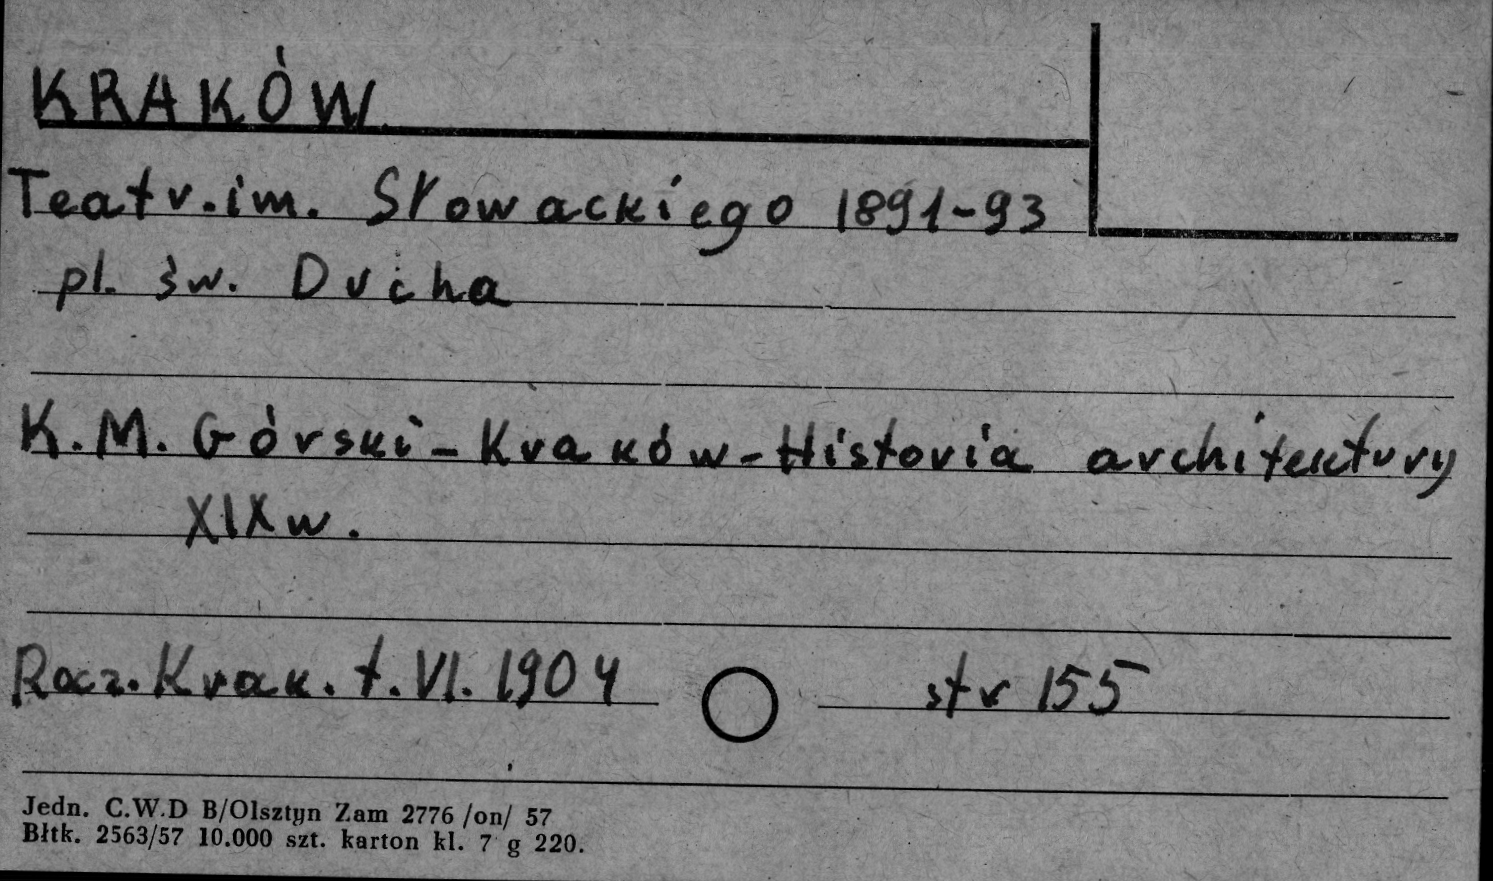 KRAKÓW
Teatr.im. Słowackiego 1891-93
pl. św. Ducha
K.M. Górski - Kraków - Historia architektury
XIX w.
Rocz. Krak. t. VI. 1904 str 155
Jedn. C.W.D B/Olsztyn Zam 2776 /on/ 57
Bltk. 2563/57 10.000 szt. karton kl. 7 g 220.